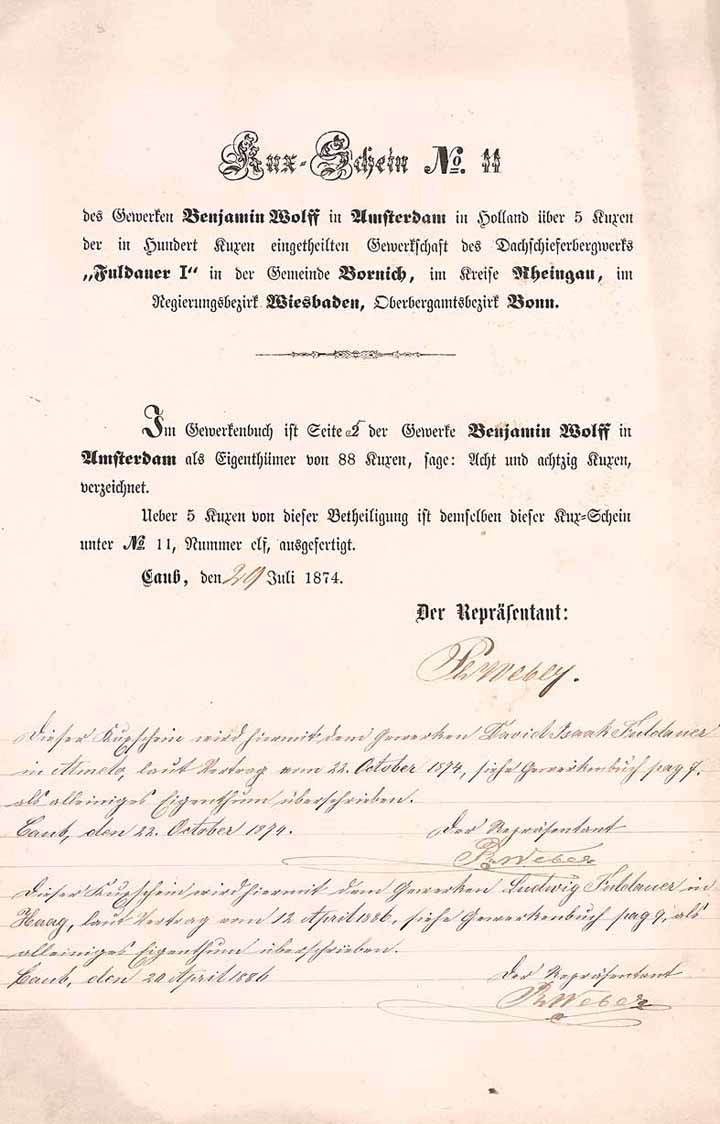 Kux-Schein No. 11
des Gewerken Benjamin Wolff in Amsterdam in Holland über 5 Kuxen
der in Hundert Kuxen eingetheilten Gewerkschaft des Dachschieferbergwerks
„Fuldauer I“ in der Gemeinde Bornich, im Kreise Rheingau, im
Regierungsbezirk Wiesbaden, Oberbergamtsbezirk Bonn.
Im Gewerkenbuch ist Seite 2 der Gewerke Benjamin Wolff in
Amsterdam als Eigenthümer von 88 Kuxen, sage: Acht und achtzig Kuxen,
verzeichnet.
Ueber 5 Kuxen von dieser Betheiligung ist demselben dieser Kux-Schein
unter No 11, Nummer elf, ausgefertigt.
Caub, den 29 Juli 1874.
Der Repräsentant:
Weber.
Dieser Kuxschein wird hiermit dem Gewerken David Isaak Fuldauer
in Almelo, laut Vertrag vom 22. October 1874, siehe Gewerkenbuch pag 7.
als alleiniges Eigenthum überschrieben.
Caub, den 22. October 1874.
Der Repräsentant
Weber
Dieser Kuxschein wird hiermit dem Gewerken Ludwig Fuldauer in
Haag, laut Vertrag vom 12 April 1886, siehe Gewerkenbuch pag 9, als
alleiniges Eigenthum überschrieben.
Caub, den 20 April 1886
Der Repräsentant
Weber